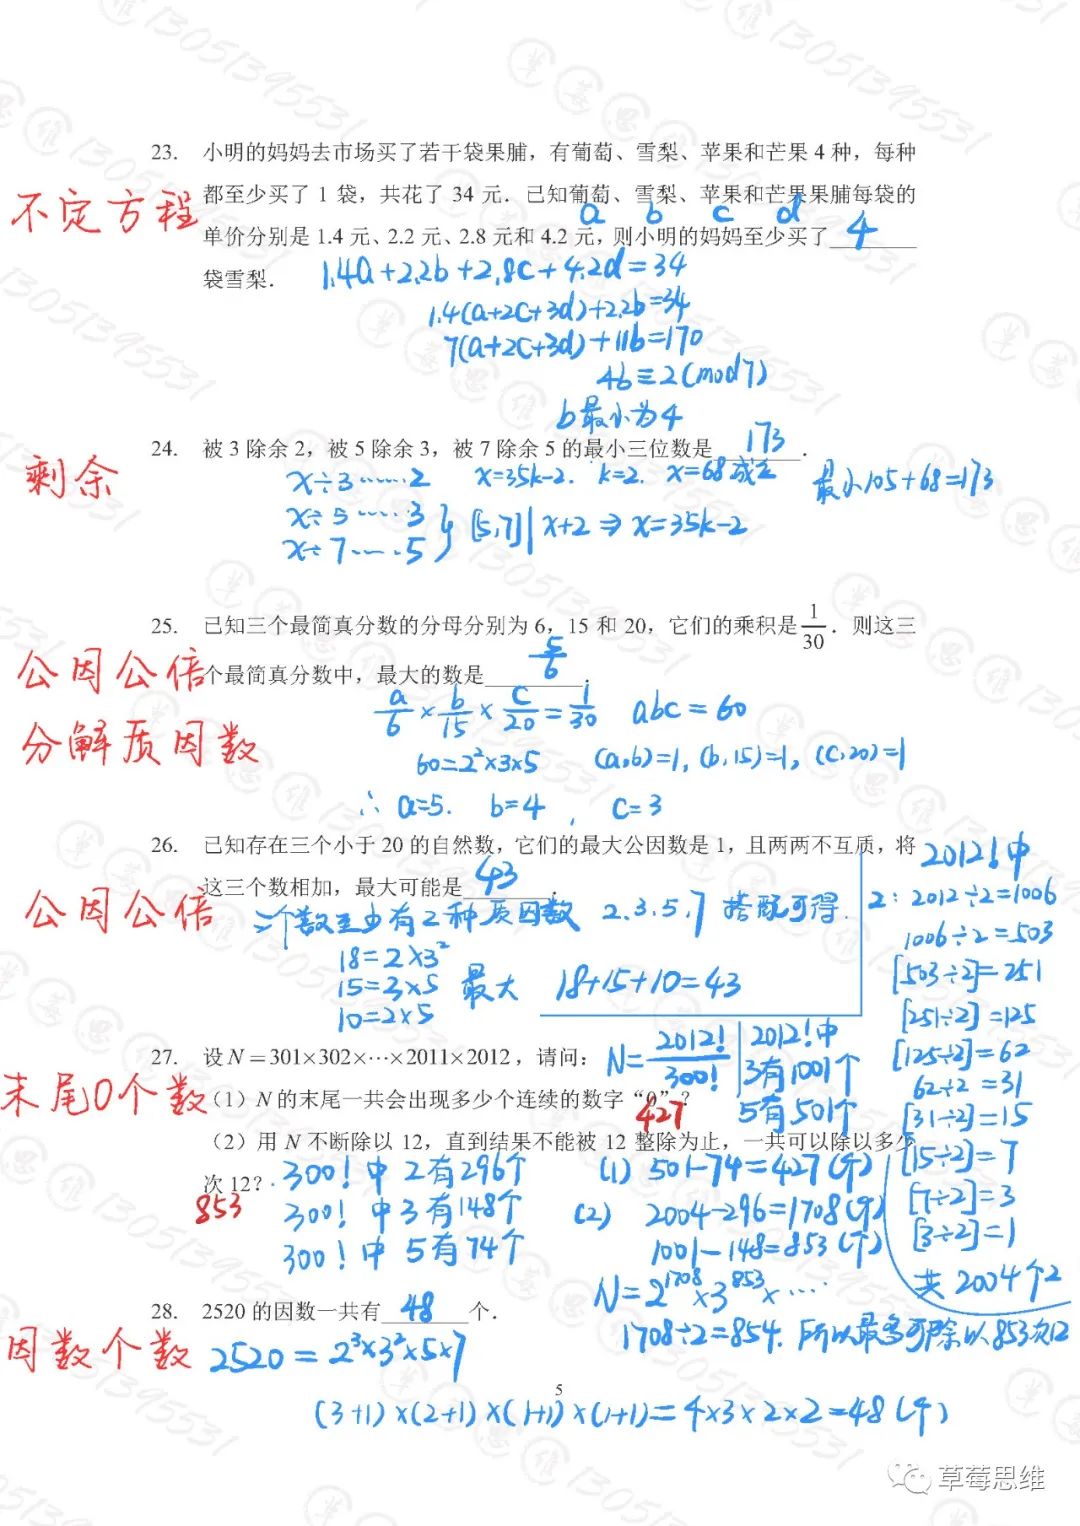 23. 小明的妈妈去市场买了若干袋果脯，有葡萄、雪梨、苹果和芒果 4 种，每种
不定方程
都至少买了 1 袋，共花了 34 元．已知葡萄、雪梨、苹果和芒果果脯每袋的
a b c d
单价分别是 1.4 元、2.2 元、2.8 元和 4.2 元，则小明的妈妈至少买了 4
袋雪梨．
1.4a+2.2b+2.8c+4.2d=34
1.4(a+2c+3d)+2.2b=34
7(a+2c+3d)+11b=170
4b≡2(mod7)
b最小为4
24. 被 3 除余 2，被 5 除余 3，被 7 除余 5 的最小三位数是 173 ．
剩余
x÷3……2 x=35k-2. k=2. x=68成立 最小105+68=173
x÷5……3
x÷7……5 } [5,7]|x+2⇒x=35k-2
25. 已知三个最简真分数的分母分别为 6，15 和 20，它们的乘积是 1/30．则这三
公因公倍
个最简真分数中，最大的数是 5/6 ．
分解质因数
a/6×b/15×c/20=1/30 abc=60
60=2²×3×5 (a,6)=1, (b,15)=1, (c,20)=1
∴a=5. b=4, c=3
26. 已知存在三个小于 20 的自然数，它们的最大公因数是 1，且两两不互质，将
这三个数相加，最大可能是 43 ．
公因公倍
一个数至少有2种质因数 2.3.5.7搭配可得.
18=2×3²
15=3×5 最大 18+15+10=43
10=2×5
2012!中
2: 2012÷2=1006
1006÷2=503
[503÷2]=251
[251÷2]=125
[125÷2]=62
62÷2=31
[31÷2]=15
[15÷2]=7
[7÷2]=3
[3÷2]=1
共2004个2
27. 设 N＝301×302×⋯×2011×2012，请问：
N=2012!/300!
2012!中
3有1001个
5有501个
末尾0个数
（1）N 的末尾一共会出现多少个连续的数字“0”？
427
（2）用 N 不断除以 12，直到结果不能被 12 整除为止，一共可以除以多少
次 12？
853
300!中2有296个
300!中3有148个
300!中5有74个
(1) 501-74=427(个)
(2) 2004-296=1708(个)
1001-148=853(个)
N=2^1708×3^853×……
1708÷2=854. 所以最多可除以853次12
28. 2520 的因数一共有 48 个．
因数个数
2520=2³×3²×5×7
5
(3+1)×(2+1)×(1+1)×(1+1)=4×3×2×2=48(个)
草莓思维
草莓思维13051395531